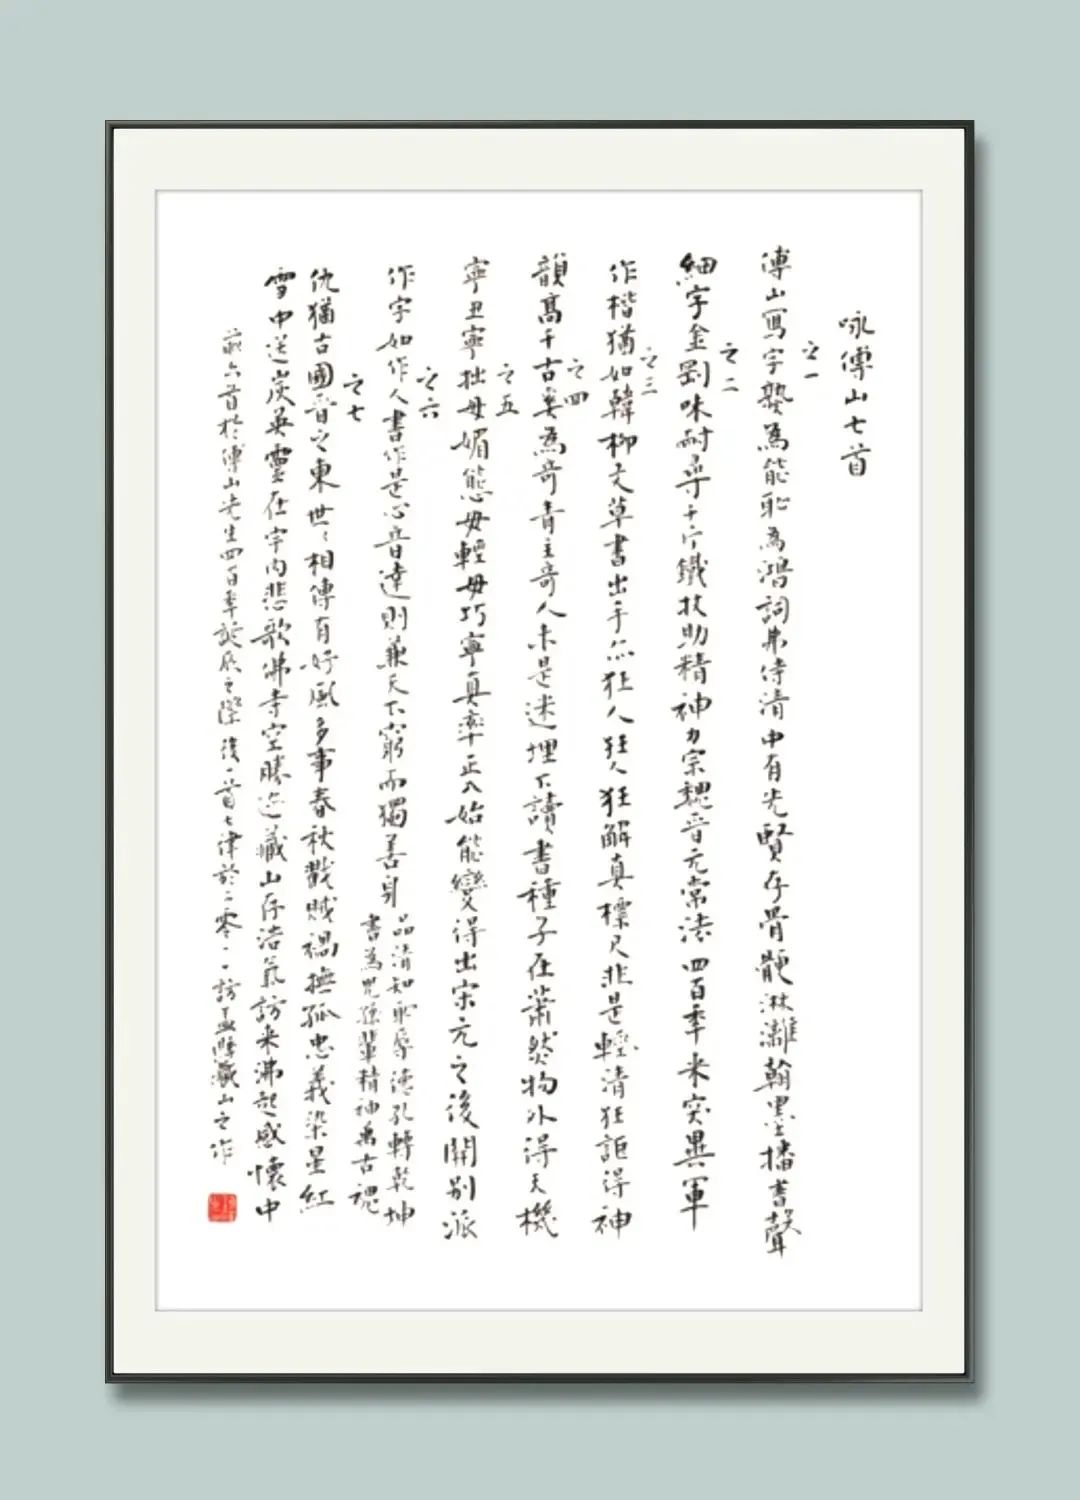 咏傅山七首
之一
傅山寫字孰為能恥為鴻詞弗侍清中有光賢存骨骾淋灕翰墨播書聲
之二
細字金剛味耐尋千斤鐵杖助精神力宗魏晋元常法四百年来突異軍
之三
作楷猶如韓柳文草書出手亦狂人狂人狂解真標尺非是輕清狂詎得神
之四
韻髙千古矣為奇青主奇人未是迷埋下讀書種子在蕭然物外得天機
之五
寧丑寧拙毋媚態毋輕毋巧寧真率正入始能變得出宋元之後開别派
之六
作字如作人書作是心音達則兼天下窮而獨善身
品清知恥辱德孔轉乾坤
書為兒孫輩精神萬古魂
之七
仇猶古國晋之東世世相傳有好風多事春秋戮賊禍撫孤忠義染星紅
雪中送炭英靈在宇内悲歌佛寺空勝迹藏山存浩氣訪来沸起感懷中
前六首於傅山先生四百年誕辰之際後一首七律於二零一一訪盂縣藏山之作